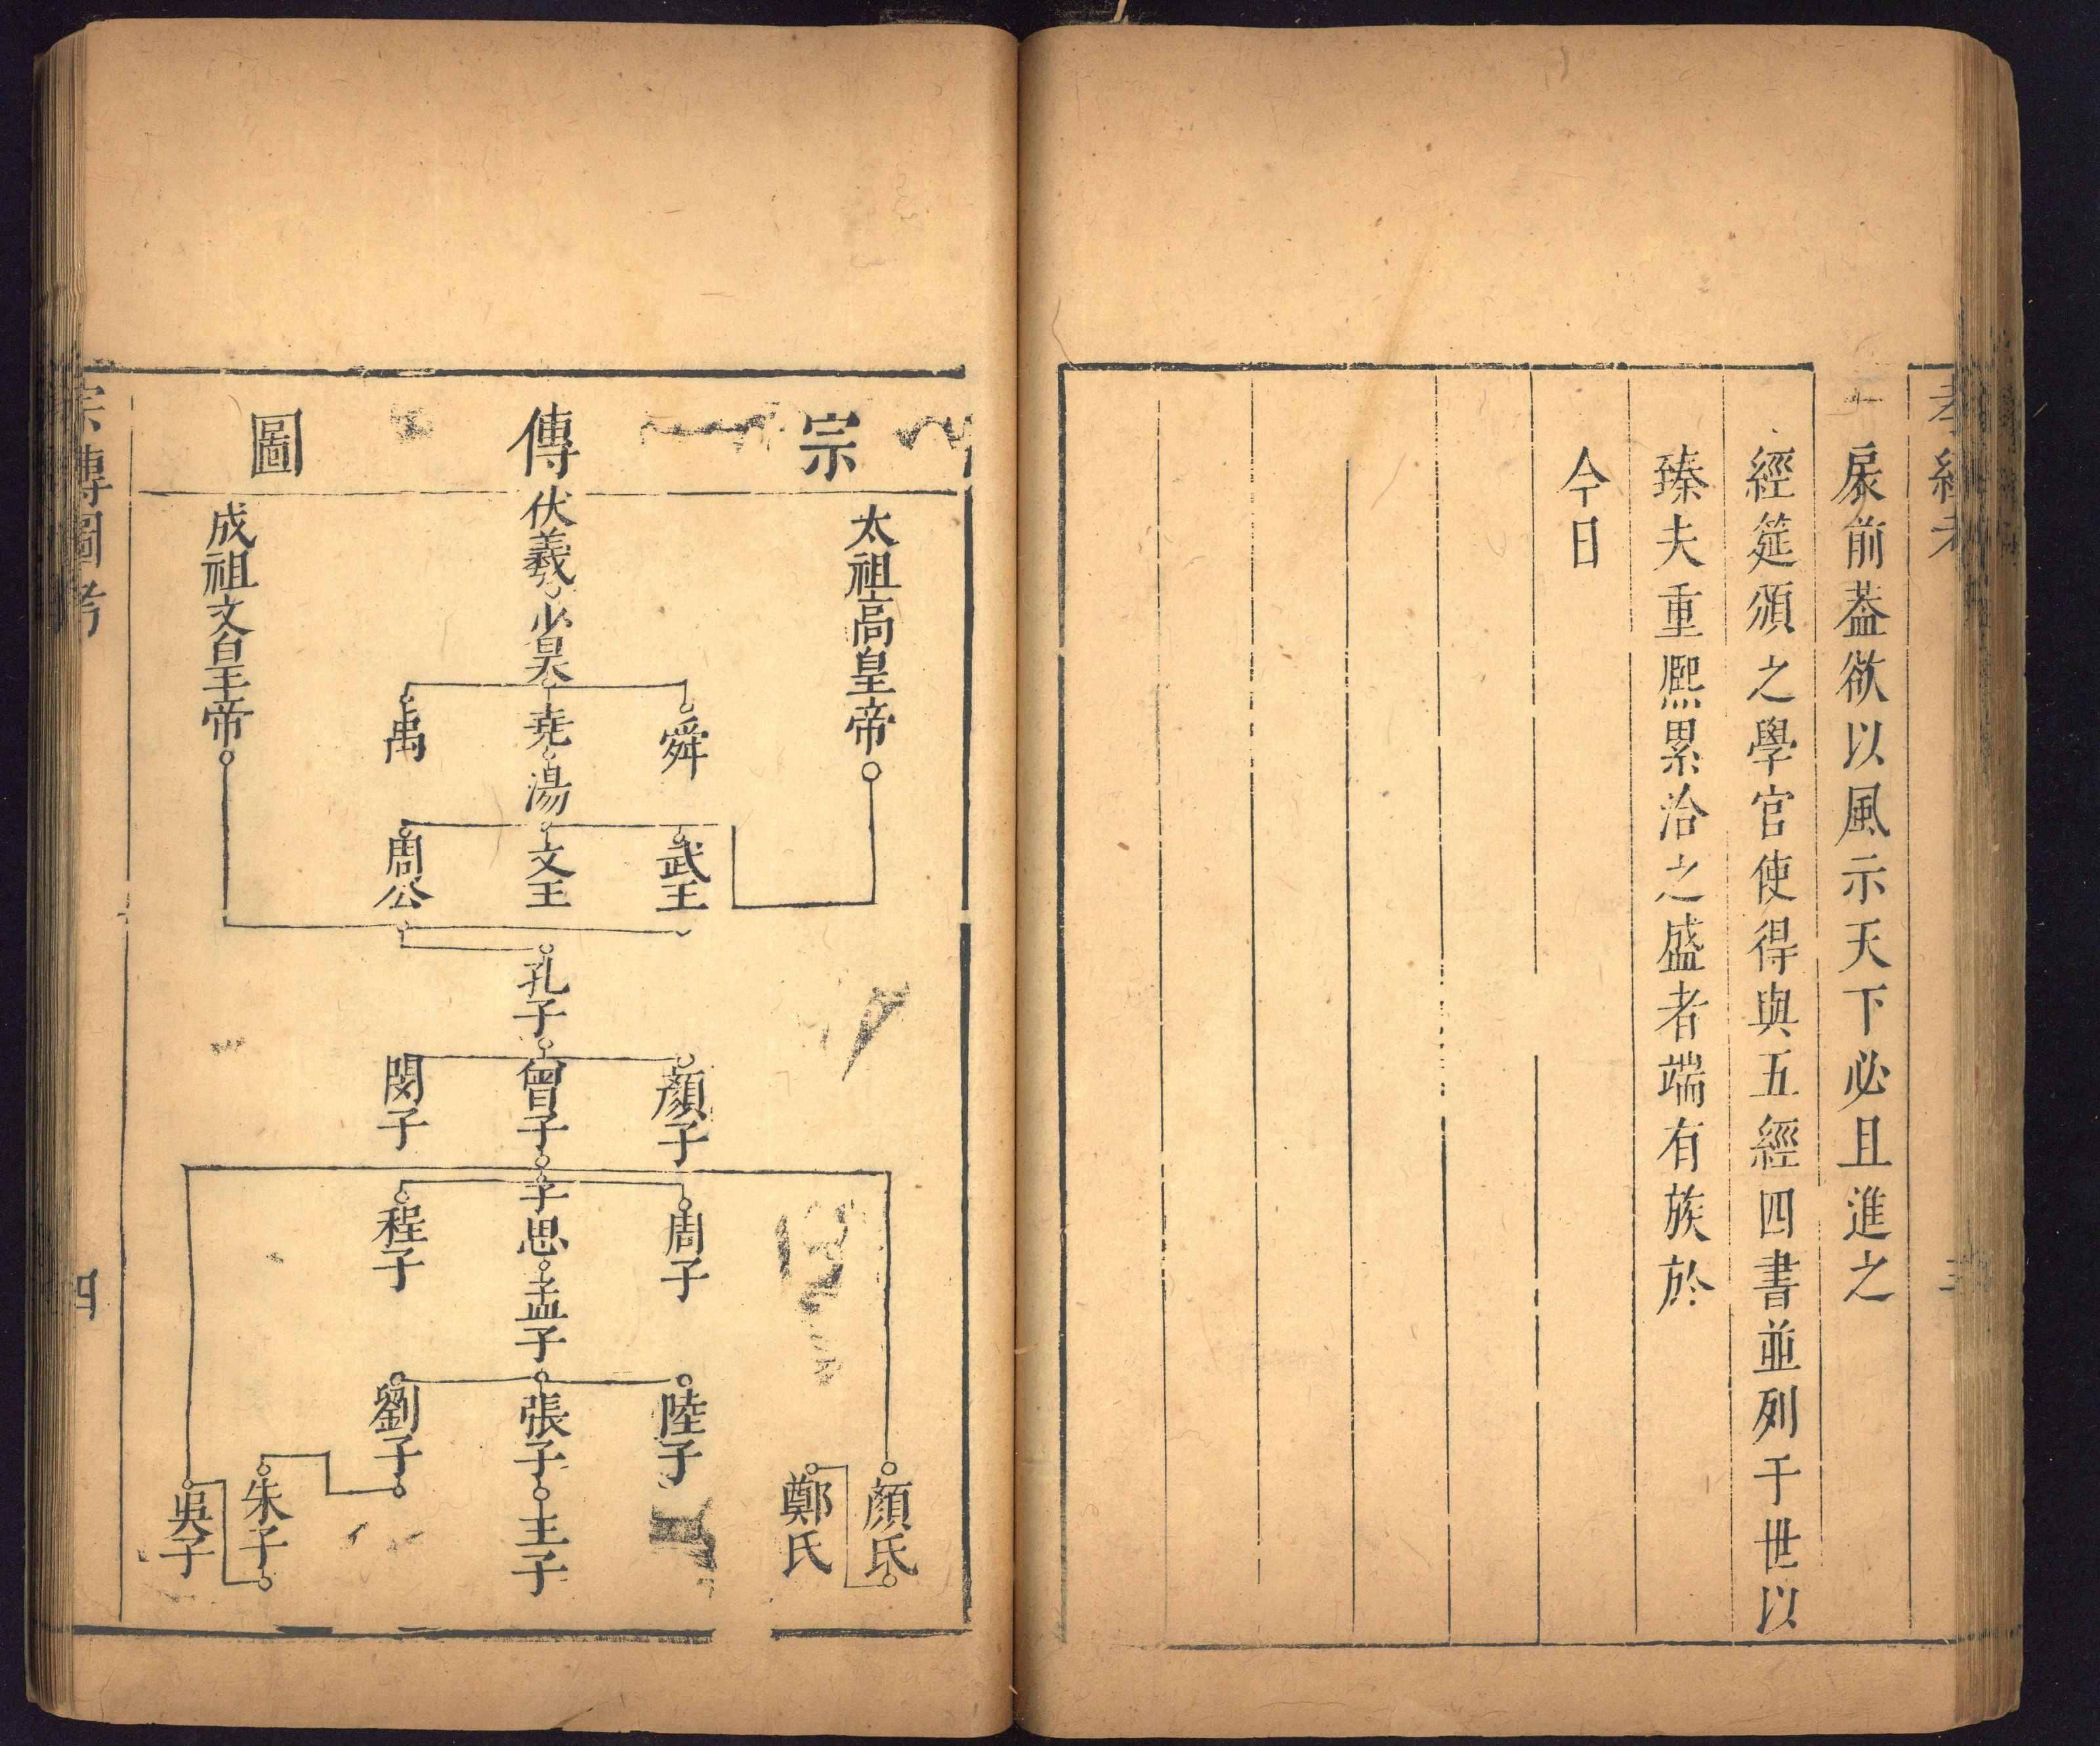 扆前葢欲以風示天下必且進之
經筵頒之學官使得與五經四書並列于世以
臻夫重熈累洽之盛者端有族於
今日
宗傳圖
太祖高皇帝
伏羲
少昊
舜
堯
禹
湯
武王
文王
周公
成祖文皇帝
孔子
顏子
曾子
閔子
子思
周子
程子
孟子
陸子
張子
劉子
王子
顏氏
鄭氏
朱子
吳子
宗傳圖考
四